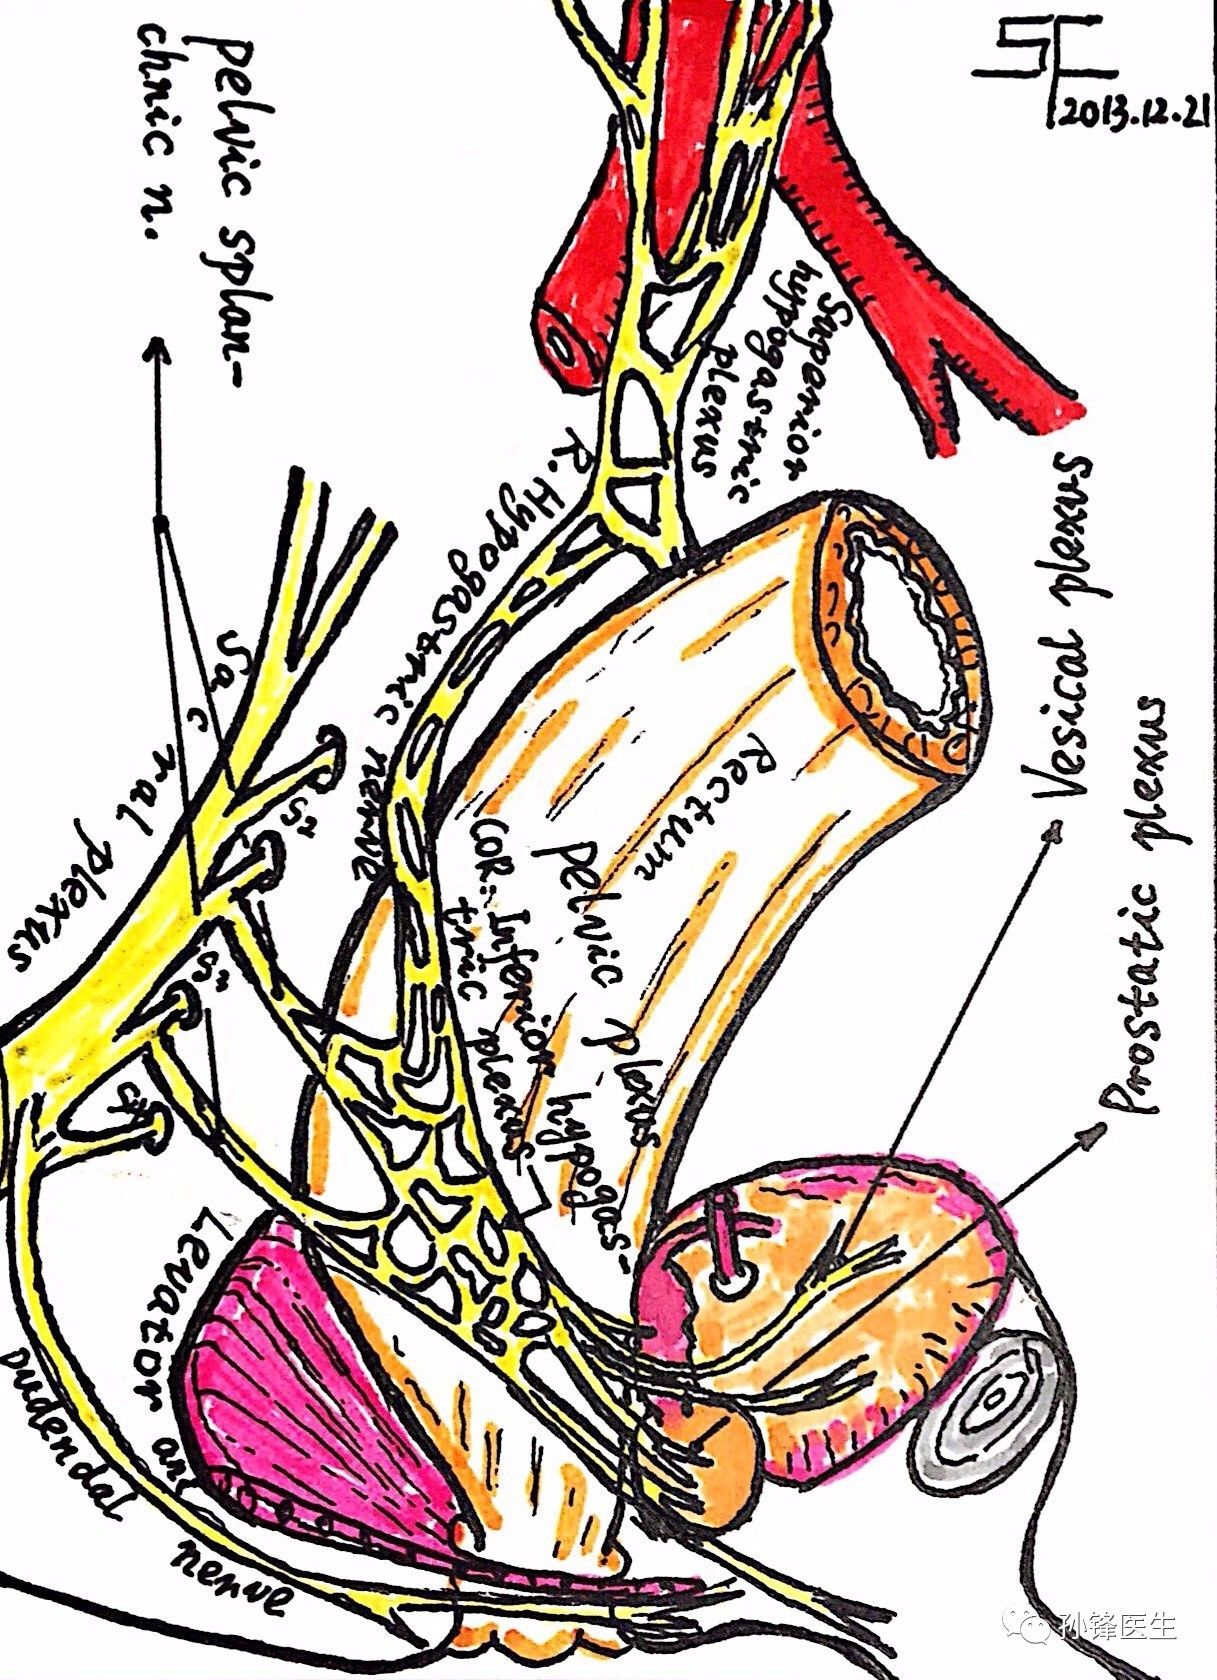 SF
2013.12.21
pelvic splan-
chnic n.
Superior
hypogastric
plexus
R. Hypogastric nerve
Vesical plexus
Prostatic plexus
Rectum
pelvic plexus
(OR: Inferior hypogas-
tric plexus)
Sacral plexus
S2
S3
S4
Levator ani
pudendal nerve
孙锋医生